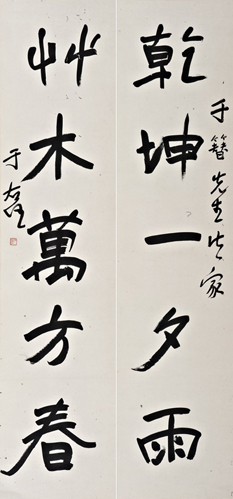 乾坤一夕雨
先生 家
艸木萬方春
于右任